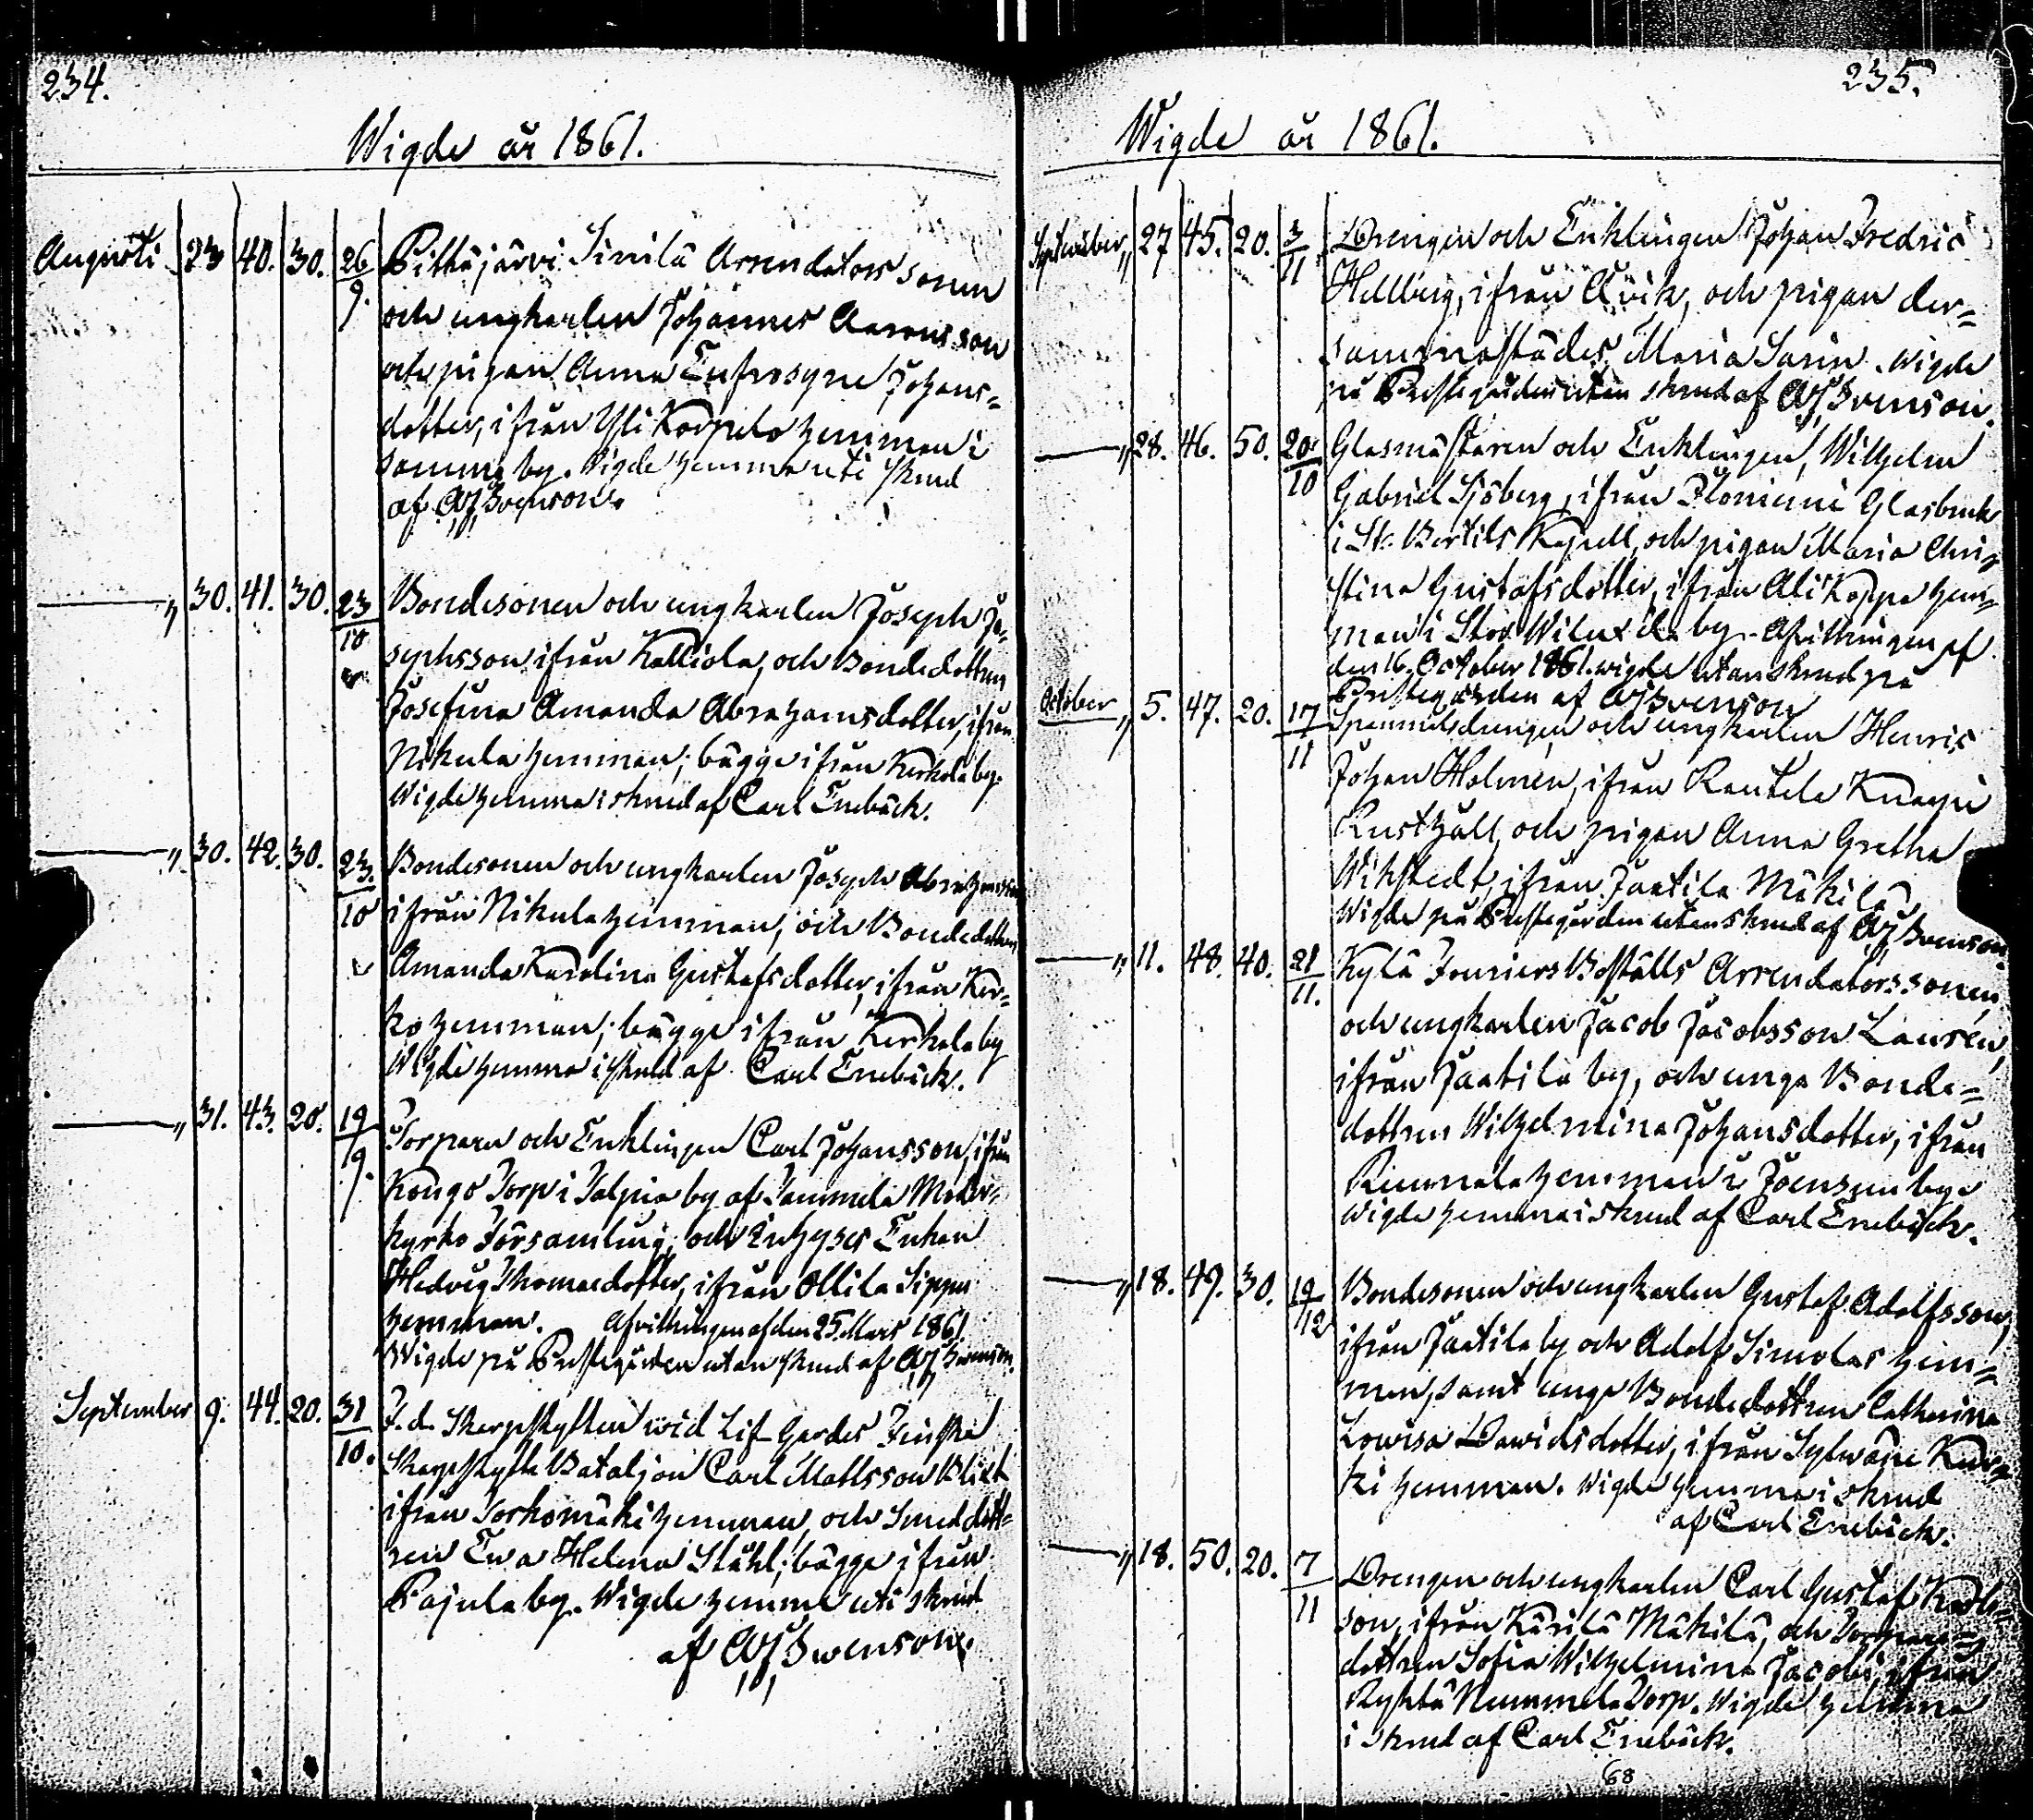 234.
Wigde år 1861.
Augusti 23 40. 30. 26/9. Pitkäjärvi Simila Arrendators sonen
och ungkarlen Johannes Aronsson
och pigan Anna Eufrosyne Johans=
dotter, ifrån Yli Korpela hemman i
samma by. Wigde hemma uti skrud
af Swenson.
" 30. 41. 30. 23/10 Bondesonen och ungkarlen Joseph Jo=
sephsson ifrån Kalliola, och Bondedottren
Josefina Amanda Abrahamsdotter, ifrån
Nikula hemman; bägge ifrån Kerkola by.
Wigde hemma i skrud af Carl Enebäck.
" 30. 42. 30. 23./10 Bondesonen och ungkarlen Joseph Abrahamsson
ifrån Nikula hemman, och Bondedottren
Amanda Karolina Gustafsdotter, ifrån Ker=
ko hemman; bägge ifrån Kerkola by
Wigde hemma i skrud af Carl Enebäck.
" 31. 43. 20. 19/9. Torparen och Enklingen Carl Johansson, ifrån
Kongo Torp i Talpia by af Tammela Moder=
kyrko Församling, och Inhyses Enkan
Hedvig Thomasdotter, ifrån Ollila Sippu
hemman. Afvittringen af den 25 Mars 1861.
Wigde på Prestegården utan skrud af Swenson.
September 9. 44. 20. 31/10. F.d. Skarpskytten wid Lif-Gardes Finska
Skarpskytte Bataljon Carl Mattsson Blixt
ifrån Torkomäki hemman, och Smeddott=
ren Ewa Helena Ståhl; bägge ifrån
Pajula by. Wigde hemma uti skrud
af Swenson.
235.
Wigde år 1861.
September " 27 45. 20. 3/11 Drengen och Enklingen Johan Fredric
Hellberg, ifrån Åvik, och pigan der=
sammastädes Maria Sarin. Wigde
på Prestegården utan skrud af Swenson.
" 28. 46. 50. 20/10 Glasmästaren och Enklingen, Wilhelm
Gabriel Sjöberg, ifrån Glasbruk
i St. Bertils Kapell, och pigan Maria Chri=
stina Gustafsdotter, ifrån Ali Koppa hem=
man i Stor Wilux by. Afvittringen af
den 16. October 1861. wigde utan skrud på
Prestegården af Swenson
October " 5. 47. 20. 17/11 Spannmålsdrengen och ungkarlen Henric
Johan Holmen, ifrån Rautela Knaapi
Rusthåll, och pigan Anna Gretha
Wikstedt, ifrån Jaatila Mäkilä
Wigde på Prestegården utan skrud af Swenson.
" 11. 48. 40. 21/11. Kylä Fouriers Boställs Arrendatorssonen
och ungkarlen Jacob Jacobsson Laurén,
ifrån Jaatila by, och unga Bonde=
dottren Wilhelmina Johansdotter, ifrån
hemman i Joensuu by.
Wigde hemma i skrud af Carl Enebäck.
" 18. 49. 30. 19/12 Bondesonen och ungkarlen Gustaf Adolfsson,
ifrån Jaatila by och Adolf Simolas hem=
man, samt unga Bondedottren Catharina
Lowisa Dawidsdotter, ifrån Sylwäne Kur=
ki hemman. Wigde hemma i skrud
af Carl Enebäck.
" 18. 50. 20. 7/11 Drengen och ungkarlen Carl Gustaf Karls=
son, ifrån Kärilä Mäkilä, och Torpare=
dottren Sofia Wilhelmina Jacobi, ifrån
Nummela Torp. Wigde hemma
i skrud af Carl Enebäck.
68